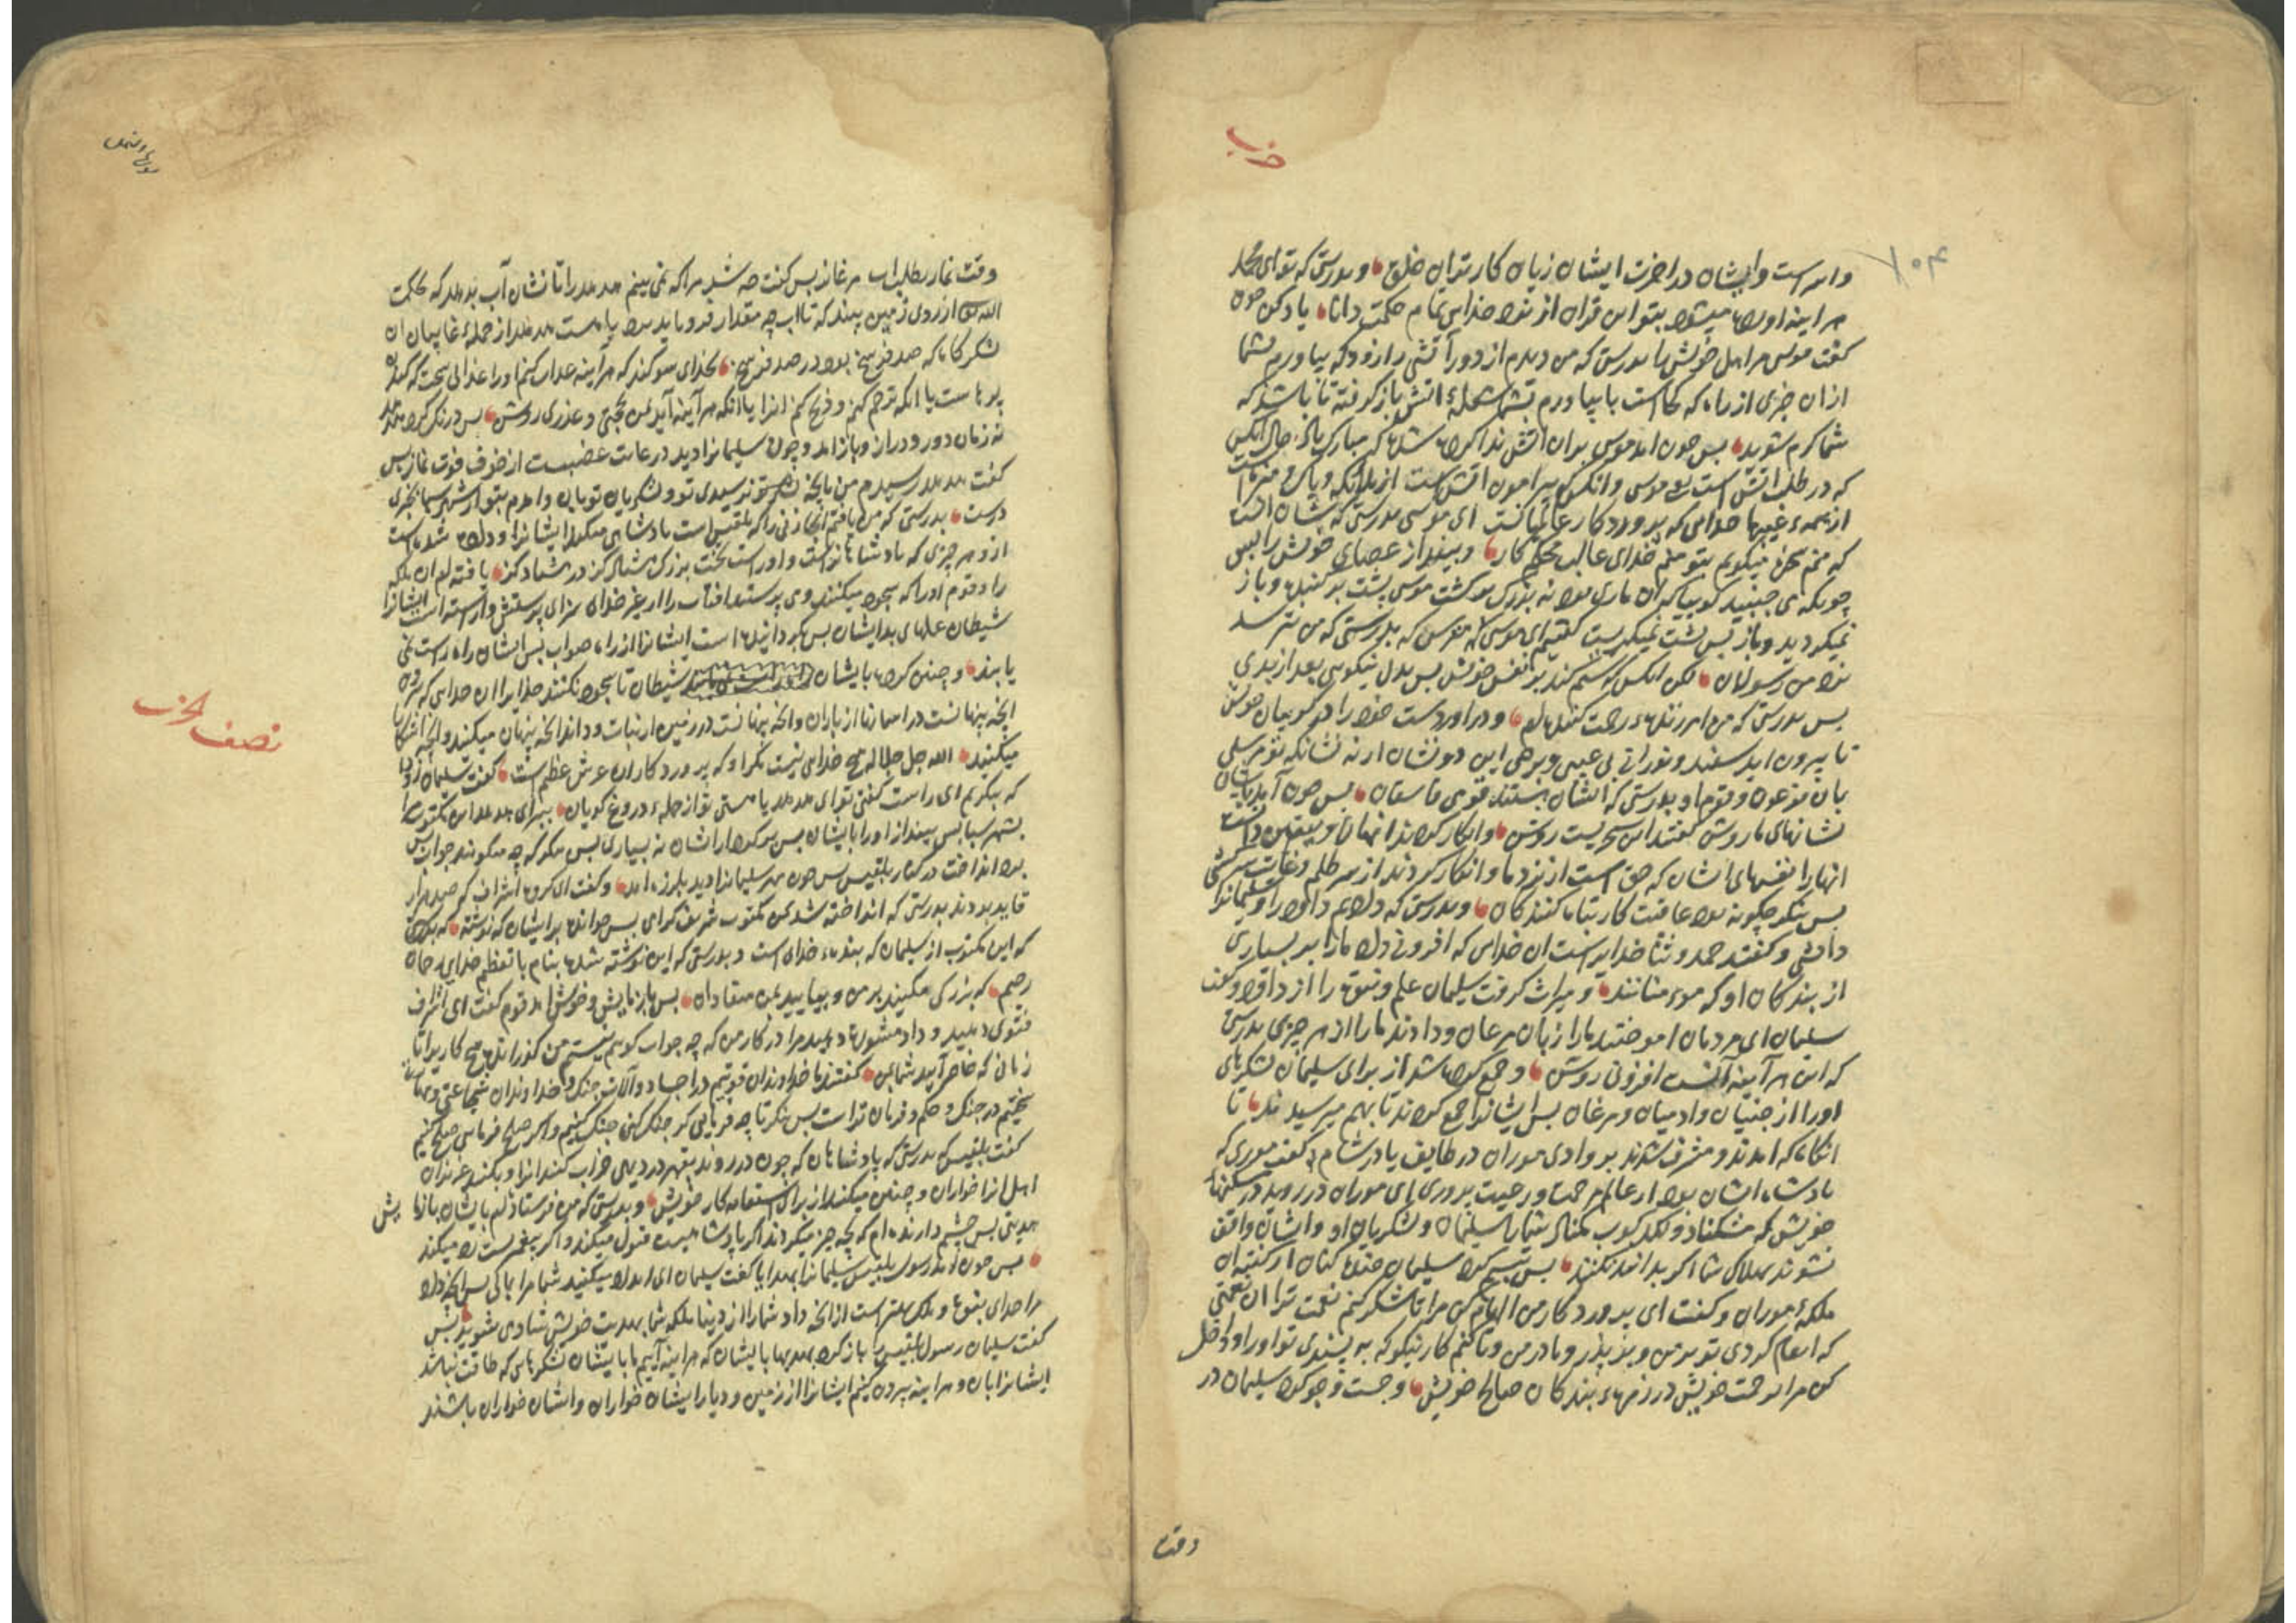 حزب
۲۰۴
واست وایشان در اخرت ایشان زیان کارترین خلق و بدرستی که تو ای محمد
هر اینه اورده میشود بتو این قران از نزد خدای تمام حکمت دانا یاد کن چون
گفت موسی مر اهل خویش را بدرستی که من دیدم از دور آتشی را زود که بیاورم بشما
از ان خبری از راه که کجاست یا بیاورم بشما شعله اتش باز گرفته تا باشد که
شما گرم شوید بس چون امد موسی بران اتش ندا کرده شد که مبارک باد حال انکس
که در طلب اتش است موسی وانکس که پیرامون اتش است از ملائکه و پاک و منزهست
از همه عیبها خدای که پروردگار عالمیانست ای موسی بدرستی که شان انست
که منم سخن میگویم بتو منم خدای غالب محکم کار و بینداز عصای خویش را بس
چو بدیدکه می جنبید گوییا که ان ماری بود نه بزرگ برگشت موسی پشت برکننده و باز
نمیگردید و باز بس پشت نمیگریست گفتیم ای موسی که مترس که بدرستی که من نترسد
نزد من رسولان لکن انکس که ستم کند بر نفس خویش بس بدل نیکویی بعد از بدی
بس بدرستی که من امرزنده رحمت کننده ام و در اور دست خود را در گریبان خویش
تا بیرون اید سفید و نورانی بی عیبی وبرصی این دو نشان از نه نشانکه تو مرسلی
بان فرعون و قوم او بدرستی که ایشان هستند قومی فاسقان بس چون آمد بایشان
نشانهای ما روشن گفتند این سحریست روشن وانکار کردند انهارا و یقین دانست
انهارا نفسهای ایشان که حق است از نزد ما و انکار کردند از سر ظلم و غایت سرکشی
بس بنگر چگونه بود عاقبت کار تباه کنندگان و بدرستی که دادیم داود را و سلیمانرا
دانشی و گفتند حمد و ثنا خدایراست ان خدای که افزونی داد مارا بر بسیاری
از بندگان او که مومنانند و میراث گرفت سلیمان علم و نبوت را از داود و گفت
سلیمان ای مردمان اموختند مارا زبان مرغان و دادند مارا از هر چیزی بدرستی
که این هر آینه آنست افزونی روشن و جمع کرده شد از برای سلیمان لشکرهای
اورا از جنیان وادمیان و مرغان بس ایشانرا جمع کردند تا بهم میرسیدند تا
انگاه که امدند و مشرف شدند بر وادی موران در طایف یا در شام گفت موری که
پادشاه ایشان بود از عالم رحمت و رعیت پروری ای موران در روید در مسکنها
خویش که مشکناد و لگدکوب نکناد شمارا سلیمان و لشکریان او وایشان واقف
نشوند بهلاک شما اگر بدانند نکنند بس تبسم کرد سلیمان خنده کنان از گفته ان
ملکه موران و گفت ای پروردگار من الهام کن مرا تا شکر کنم نعمت ترا ان نعمتی
که انعام کردی تو بر من و بر پدر و مادر من وتا کنم کار نیکو که به پسندی تو اورا و داخل
کن مرا برحمت خویش در زمره بندگان صالح خویش و جست و جو کرد سلیمان در
وقت
وقت نماز بطلب اب مرغانرا بس گفت چه شد مرا که نمی بینم هدهد را تا نشان آب بدهد که حکمت
الله از روی زمین بیند که تا اب چه مقدار فرو باید برد یا هست هدهد از جمله غایبان ان
لشکرگاه که صد فرسخ بود در صد فرسخ بخدای سوگند که هر اینه عذاب کنم اورا عذابی سخت که کندن
پرهاست یا انکه ترحم نکنم و ذبح کنم انرا یا انکه هر آینه آید بمن بحجتی و عذری روشن بس درنگ کرد هدهد
نه زمان دور و دراز و باز امد و چون سلیمانرا دید در غایت غضبست از خوف فوت نماز بس
گفت هدهد رسیدم من بانچه تو نرسیدی تو و لشکریان تو بان وامدم بتو از شهر سبا بخبری
درست بدرستی که من یافتم انجا زنی را که بلقیس است پادشاهی میکند ایشانرا و داده شده است
از هر چیزی که پادشاهانراست واوراست تخت بزرگ هشتاد گز در هشتاد گز یافته ام ان ملکه
را و قوم اورا که سجده میکنند و می پرستند افتاب را از غیر خدای سزای پرستش واراسته است ایشانرا
شیطان عملهای بد ایشان بس گردانیده است ایشانرا از راه صواب بس ایشان راه راست نمی
یابند و چنین کرده بایشان شیطان تا سجده نکنند خدایرا ان خدای که بیرون
انچه پنهانست در اسمانها از باران وانچه پنهانست در زمین از نبات و داند انچه پنهان میکنید وانچه اشکارا
میکنید الله جل جلاله هیچ خدای نیست مگر او که پروردگار ان عرش عظیم است گفت سلیمان زود
که بنگریم ای راست گفتی تو ای هدهد یا هستی تو از جمله دروغ گویان ببر ای هدهد این مکتوب را
بشهر سبا بس بینداز اورا بایشان بس برگرد از ایشان نه بسیاری بس بنگر که چه میگویند جواب بس
برد انداخت در کنار بلقیس بس چون مهر سلیمانرا دید بلرزه امد و گفت ای گروه اشراف که صد هزار
قاید بودند بدرستی که انداخته شد بمن مکتوب شریف گرامی بس خواند برایشان که نوشته که بدرستی
که این مکتوب از سلیمان که بنده خدای است و بدرستی که این نوشته شده بنام با تعظیم خدای رحمان
رحیم که بزرگی مکنید بر من و بیایید بمن منقادان بس باز به قوم گفت ای اشراف
فتوی دهید و داد مشورة دهید مرا در کار من که چه جواب گویم نیستم من گذراننده هیچ کاریرا تا
زمانی که حاضر آیید شما بمن گفتند ما خداوندان قوتیم در اجساد وآلات جنک و خداوندان شجاعتی و
سختیم در جنک و حکم و فرمان تراست بس بنگر تا چه فرمایی گر جنک کنی جنک کنیم واگر صلح فرمایی صلح کنیم
گفت بلقیس که بدرستی که پادشاهان که چون در روند بقهر در دیهی خراب کنند انرا و بکنند عزیزان
اهل انرا خواران و چنین میکنند از برای استقامه کار خویش و بدرستی که من فرستاده ام بایشان بانها پیش
هدیتی بس چشم دارنده ام که بچه چیز میگردند اگر پادشاهست قبول میکند واگر پیغمبرست رد میکند
بس چون امد رسول بلقیس سلیمانرا بهدایا گفت سلیمان ای امداد میکنید شما مرا بمالی بس انچه داد
مرا خدای نبوت و ملک بهتر است از انچه داد شمارا از دنیا بلکه شما بهدیت خویش شادی میشوید بس
گفت سلیمان رسول بلقیس را باز گرد بهدیها بایشان که هر اینه آییم ما بایشان لشکرهایی که طاقت نباشد
ایشانرا بان و هر اینه بیرون کنیم ایشانرا از زمین و دیار ایشان خواران وایشان خواران باشند
نصف الحزب